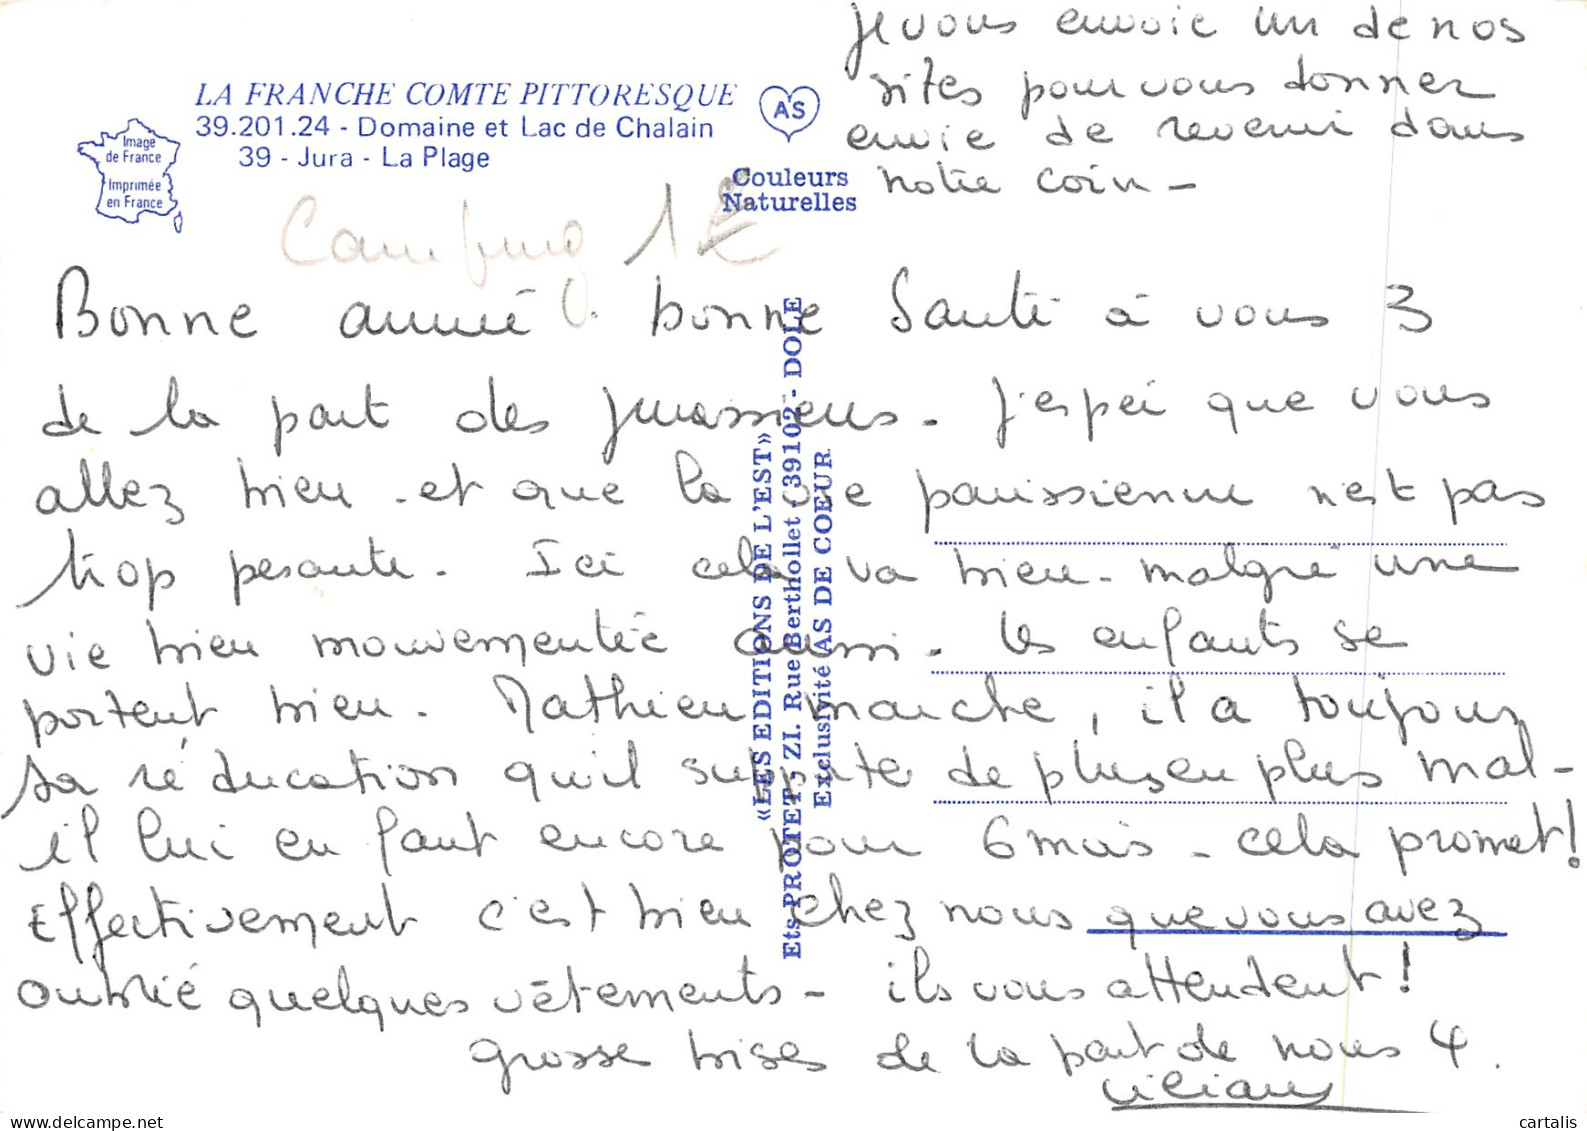 Je vous envoie un de nos
sites pour vous donner
envie de revenir dans
notre coin -
LA FRANCHE COMTE PITTORESQUE
39.201.24 - Domaine et Lac de Chalain
39 - Jura - La Plage
Image
de France
Imprimée
en France
AS
Couleurs
Naturelles
Camping 1€
Bonne année. bonne Santé à vous 3
de la part des jurassiens. J'espèi que vous
allez bien - et que la vie parisienne n'est pas
trop pesante. Ici cela va bien - malgré une
vie bien mouvementée aussi - les enfants se
portent bien. Mathieu marche, il a toujours
sa rééducation qu'il supporte de plus en plus mal -
il lui en faut encore pour 6 mois - cela promet !
Effectivement c'est bien chez nous que vous avez
oublié quelques vêtements - ils vous attendent !
grosse bises de la part de nous 4.
Liliane
«LES EDITIONS DE L'EST»
Ets PROTET - ZI. Rue Berthollet - 39102 - DOLE
Exclusivité AS DE COEUR
delcampe.net
cartalis